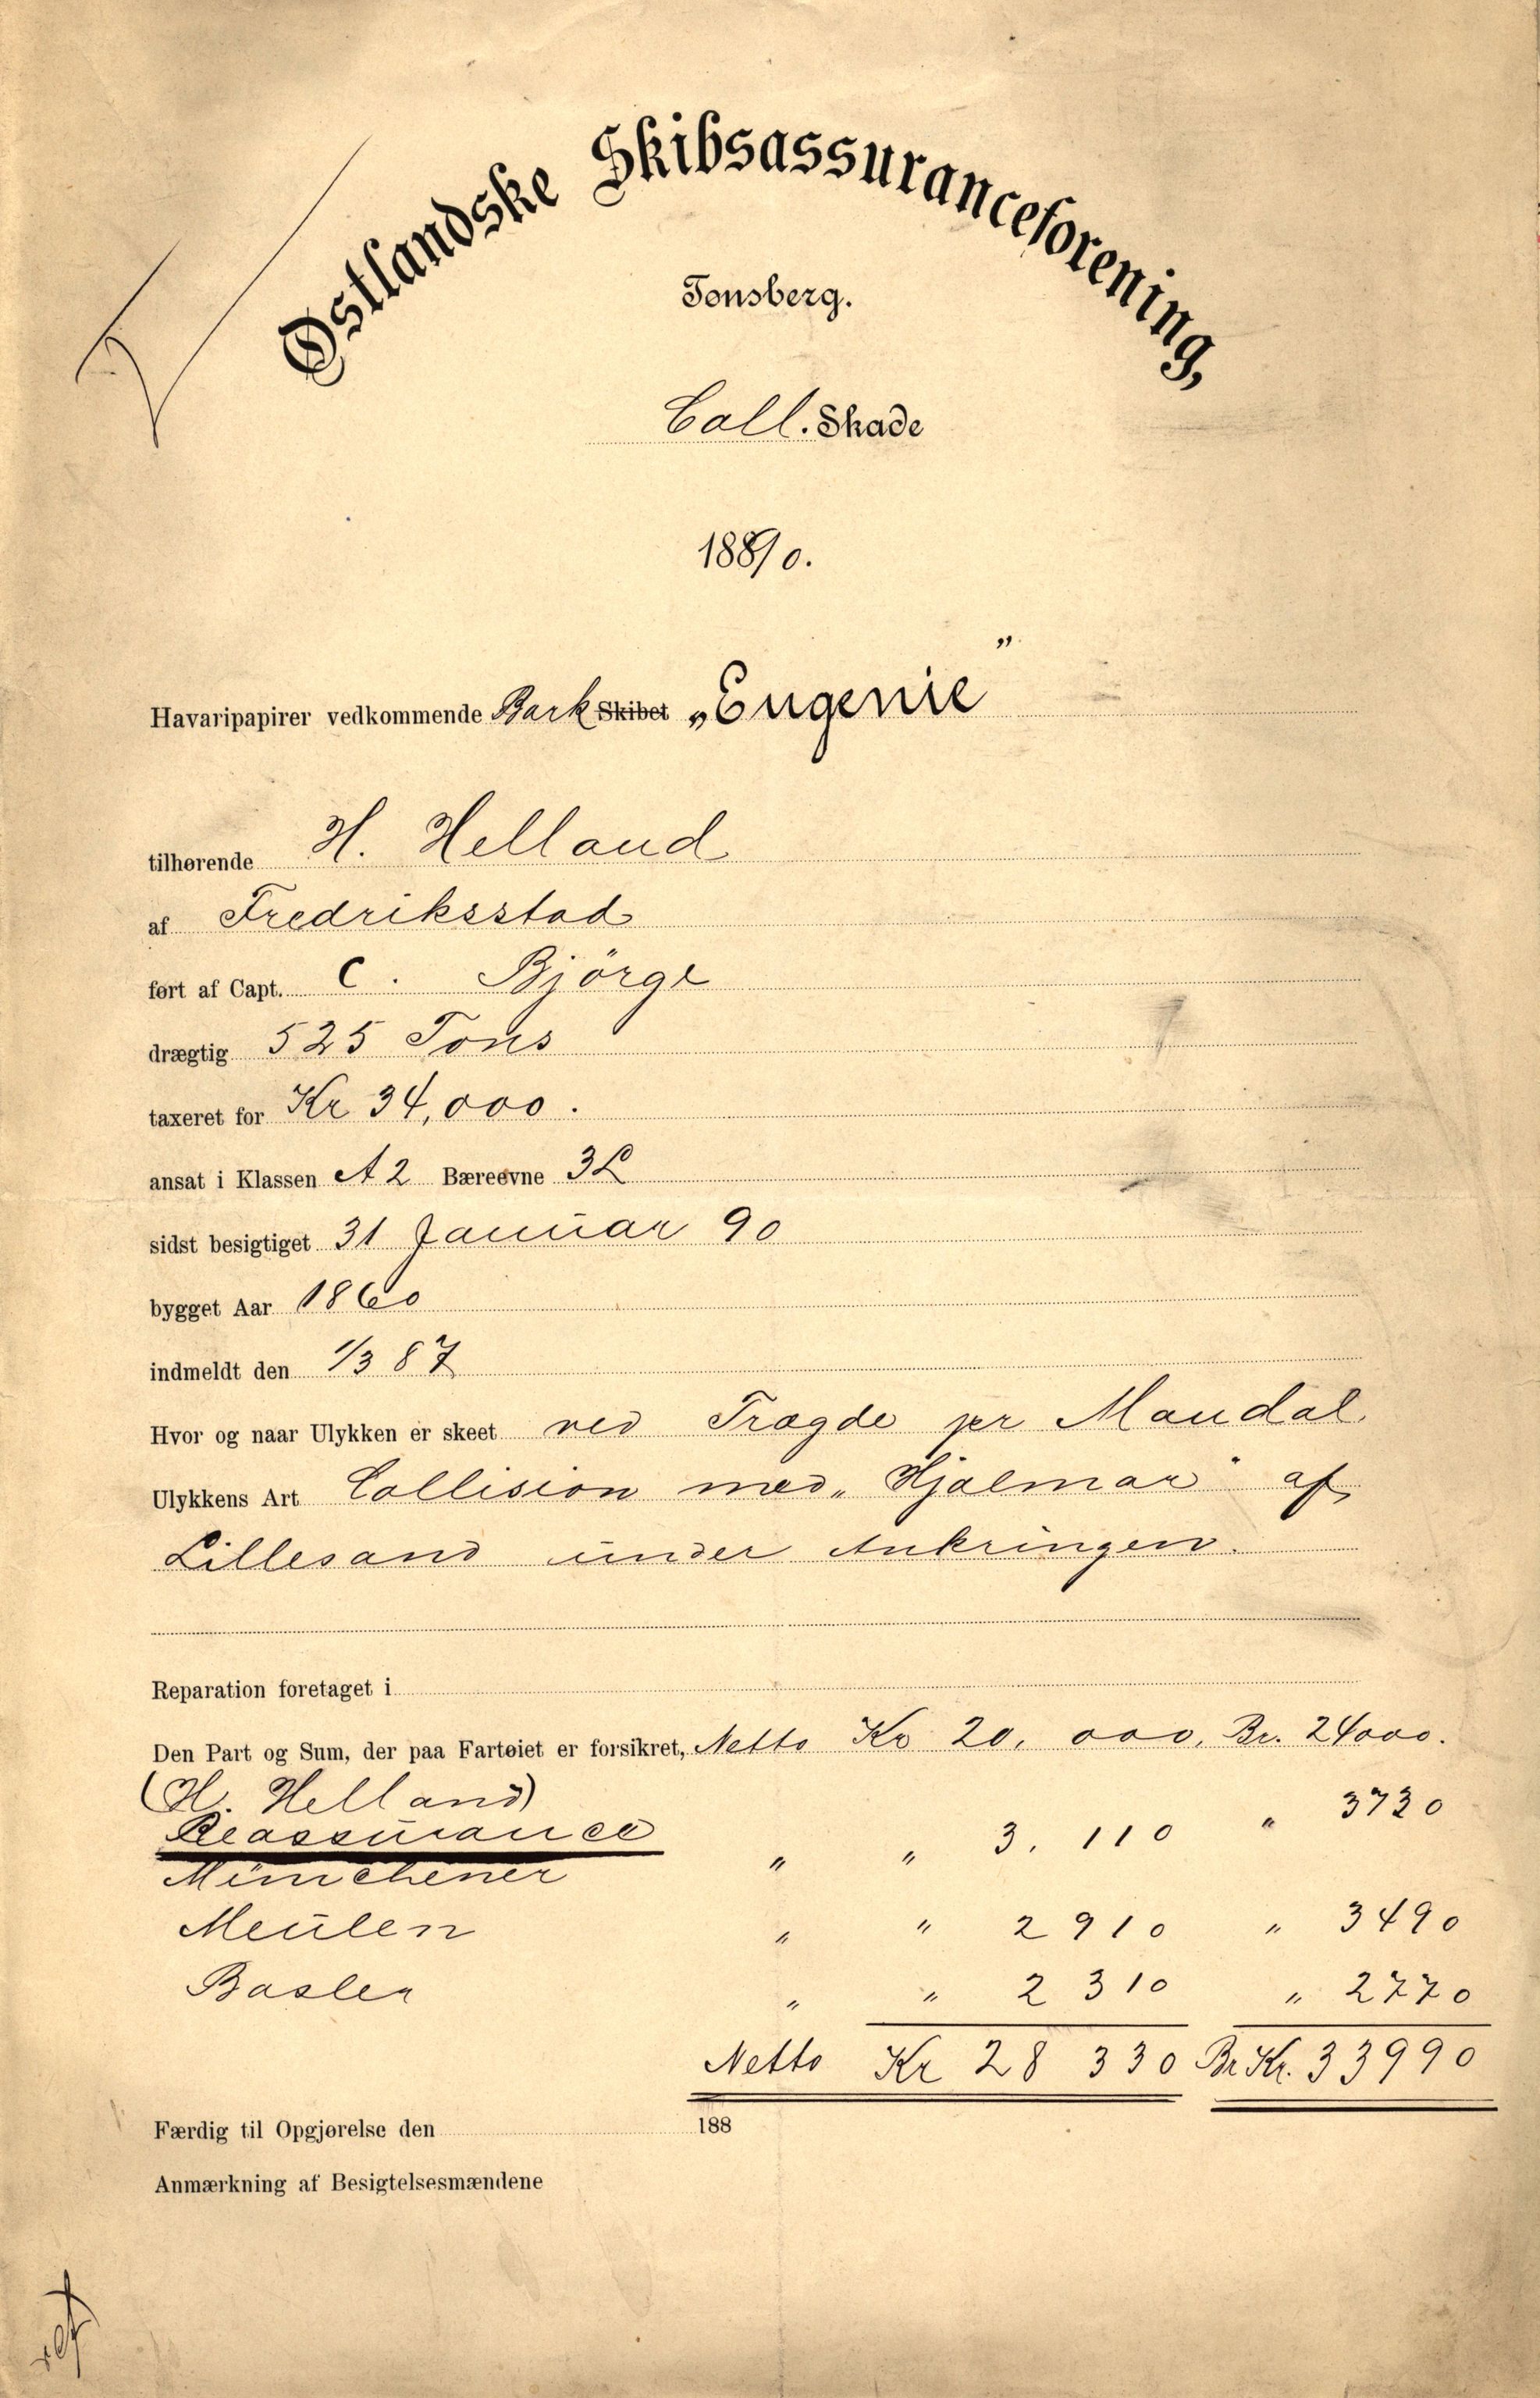 Østlandske Skibsassuranceforening,
Tønsberg.
Coll. Skade
1890.
Havaripapirer vedkommende Bark Skibet „Eugenie”
tilhørende H. Helland
af Fredriksstad
ført af Capt. C. Bjørge
drægtig 525 Tons
taxeret for Kr 34,000.
ansat i Klassen A 2 Bæreevne 3L
sidst besigtiget 31 Januar 90
bygget Aar 1860
indmeldt den 1/3 87
Hvor og naar Ulykken er skeet ved Tragde pr Mandal.
Ulykkens Art Collision med „Hjalmar" af
Lillesand under Ankringen.
Reparation foretaget i
Den Part og Sum, der paa Fartøiet er forsikret, Netto Kr 20,000, Br. 24000.
(H. Helland)
Reassurance
Münchener " " 3.110 " 3730
Meülen " " 2910 " 3490
Basler " " 2310 " 2770
Netto Kr 28 330 Br Kr. 33990
Færdig til Opgjørelse den 188
Anmærkning af Besigtelsesmændene